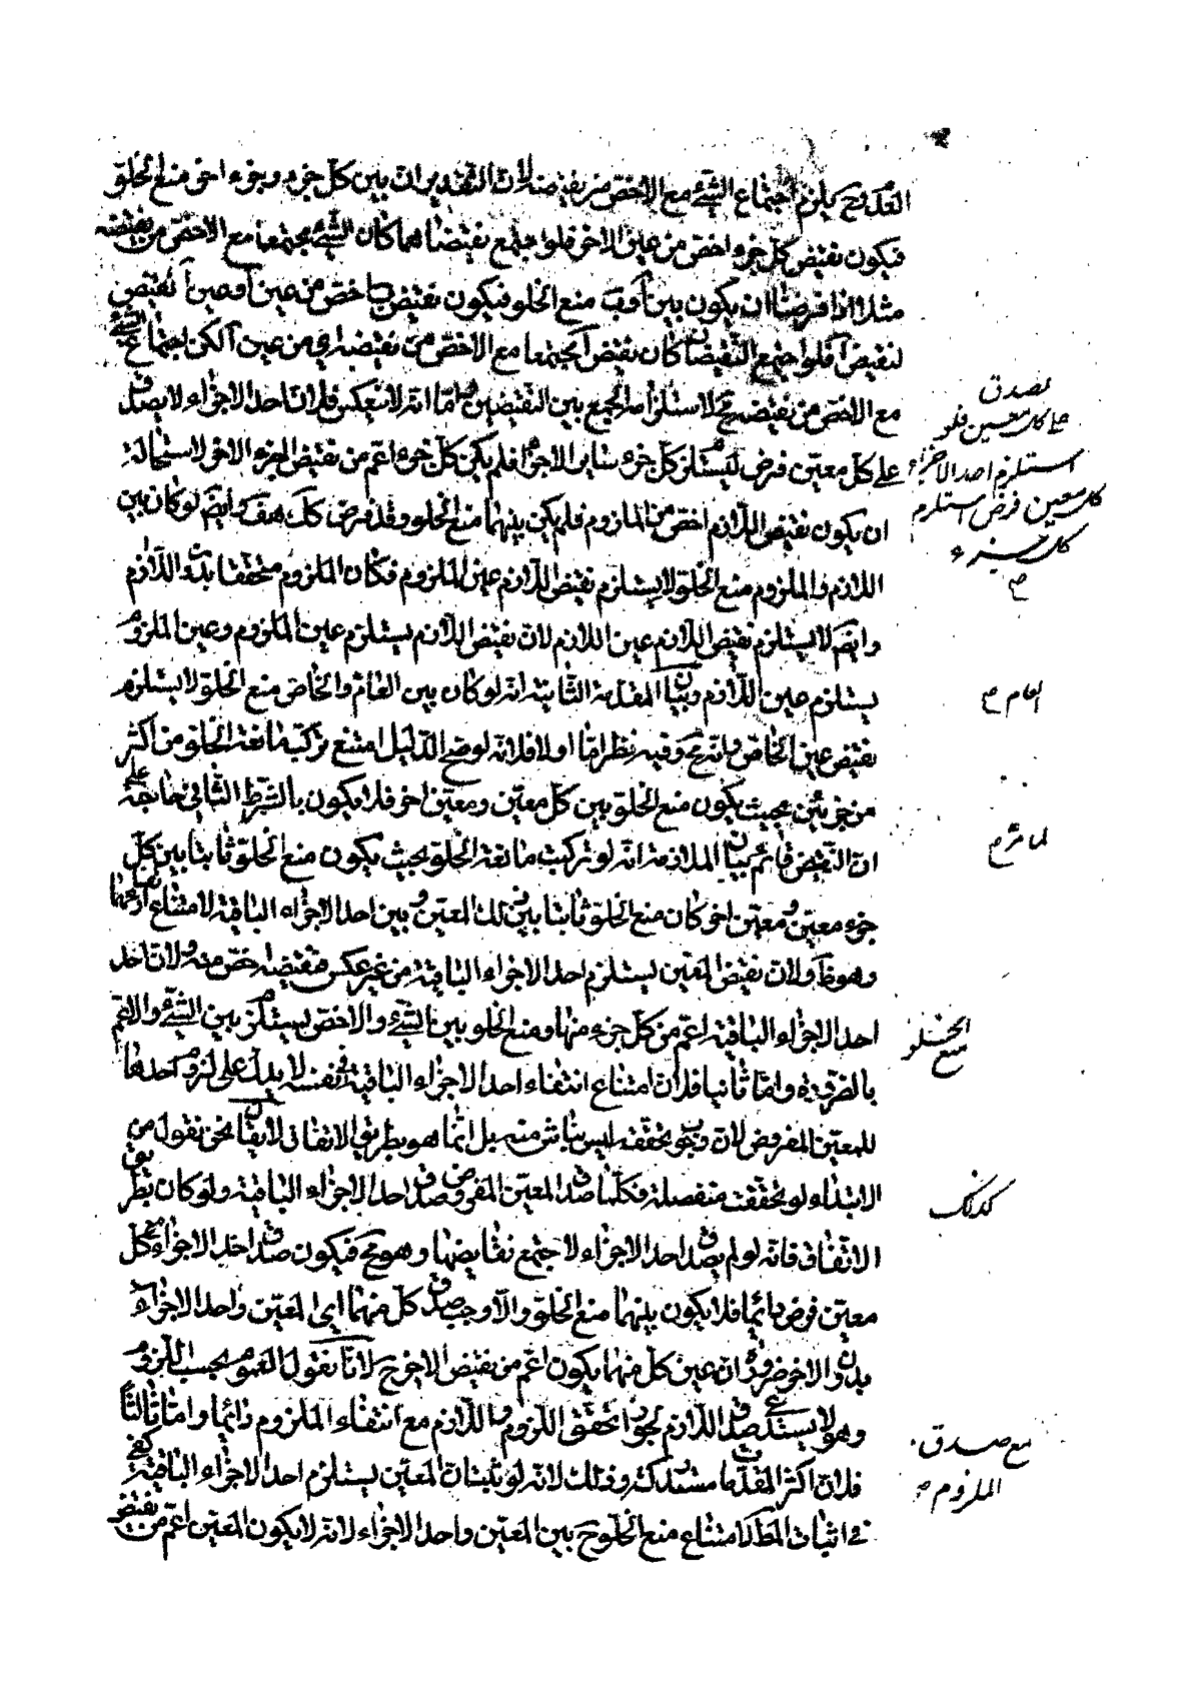 العدد وح يلزم اجتماع الشئ مع الاخص من نقيضه لان التقدير ان بين كل جزء وجزء اخر منع الخلو
فيكون نقيض كل جزء اخص من عين الاخر فلو اجتمع نقيضاهما كان الشئ مجتمعا مع الاخص من نقيضه
مثلا اذا فرضنا ان يكون بين آ و ب منع الخلو فيكون نقيض ب اخص من عين آ وعين آ نقيض
لنقيض آ فلو اجتمع النقيضان كان نقيض آ مجتمعا مع الاخص من نقيضه اي من عين آ لكن اجتماع الشئ
مع الاخص من نقيضه مح لاستلزامه الجمع بين النقيضين واما انه لا ينعكس فلان احد الاجزاء لا يصدق
على كل معين فرض ليستلزم كل جزء سائر الاجزاء فلم يكن كل جزء اعم من نقيض الجزء الاخر لاستحالة
ان يكون نقيض اللازم اخص من الملزوم فلم يكن بينهما منع الخلو وقد فرض كك هف وايضا لو كان بين
اللازم والملزوم منع الخلو لا يستلزم نقيض اللازم عين الملزوم فكان الملزوم متحققا بدون اللازم
وايضا لا يستلزم نقيض اللازم عين اللازم لان نقيض اللازم يستلزم عين الملزوم وعين الملزوم
يستلزم عين اللازم وبيان المقدمة الثانية انه لو كان بين العام والخاص منع الخلو لا يستلزم
نقيض عين الخاص وانه مح وفيه نظر اما اولا فلانه لو صح الدليل امتنع تركب مانعة الخلو من اكثر
من جزئين بحيث يكون منع الخلو بين كل معين ومعين اخر فلا يكون بالشرط الثاني حاجة على
ان النقيض قائم بيان الملازمة انه لو تركبت مانعة الخلو بحيث يكون منع الخلو ثابتا بين كل
جزء معين ومعين اخر كان منع الخلو ثابتا بين ذلك المعين وبين احد الاجزاء الباقية لامتناع ارتفاعهما
وهو ظ ولان نقيض المعين يستلزم احد الاجزاء الباقية من غير عكس فنقيضه اخص منه ولان احد
احد الاجزاء الباقية اعم من كل جزء منها ومنع الخلو بين الشئ والاخص يستلزم بين الشئ والاعم
بالضرورة واما ثانيا فلان امتناع انتفاء احد الاجزاء الباقية في نفسه لا يدل على لزوم احدها
للمعين المفروض لان وجوب تحققه ليس بناش منه بل انما هو بطريق الاتفاق لا يقال نحن نقول من
الابتداء لو تحققت منفصلة فكلما صدق المعين المفروض صدق احد الاجزاء الباقية ولو كان بطريق
الاتفاق فانه لو لم يصدق احد الاجزاء لاجتمع نقايضها وهو مح فيكون صدق احد الاجزاء مع كل
معين فرض دائما فلا يكون بينهما منع الخلو والا وجب صدق كل منهما اي المعين واحد الاجزاء
بدون الاخر ضرورة ان عين كل منهما يكون اعم من نقيض الاخر ح لانا نقول العموم بحسب اللزوم
وهو لا يستدعي صدق اللازم لجواز تحقق اللزوم واللازم مع انتفاء الملزوم دائما واما ثالثا
فلان اكثر المقدمات مستدركة وذلك لانه لو ثبت ان المعين يستلزم احد الاجزاء الباقية كفى
في اثبات المط كامتناع منع الخلو ح بين المعين واحد الاجزاء لانه لا يكون المعين اعم من نقيض
لصدق
على كل معين فلو
استلزم احد الاجزاء
كل معين فرض استلزم
كل جزء
العام
لما مر
كذلك
مع صدق
الملزوم